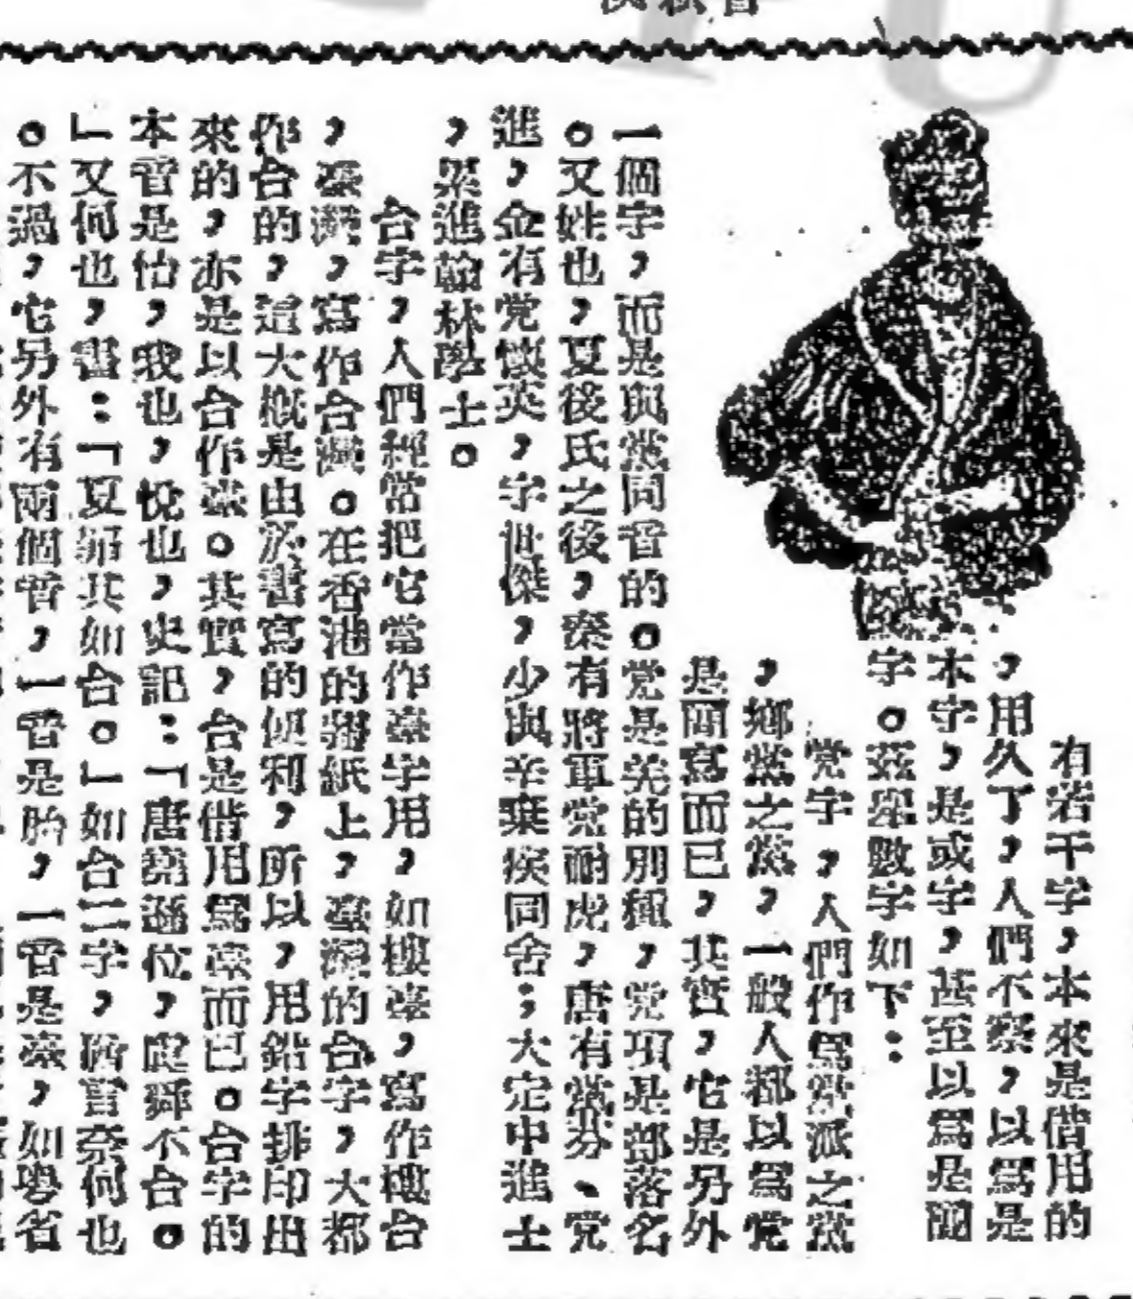 有若干字，本來是借用的
，用久了，人們不察，以爲是
本字，是或字，甚至以爲是簡
字。茲舉數字如下：
党字，人們作爲黨派之黨
，鄉黨之黨，一般人都以爲党
是簡寫而已，其實，它是另外
一個字，而是與黨同音的。党是羌的別種，党項是部落名
。又姓也，夏後氏之後，秦有將軍党耐虎，唐有党芬、党
進，金有党懷英，字世傑，少與辛棄疾同舍；大定中進士
，累進翰林學士。
台字，人們經常把它當作臺字用，如樓臺，寫作樓台
，臺灣，寫作台灣。在香港的報紙上，臺灣的台字，大都
作台的，這大槪是由於書寫的便利，所以，用鉛字排印出
來的，亦是以台作臺。其實，台是借用爲臺而已。台字的
本音是怡，我也，悅也，史記：「唐堯遜位，虞舜不台。
」又何也，書：「夏罪其如台。」如台二字，皆言奈何也
。不過，它另外有兩個音，一音是胎，一音是臺，如粵省